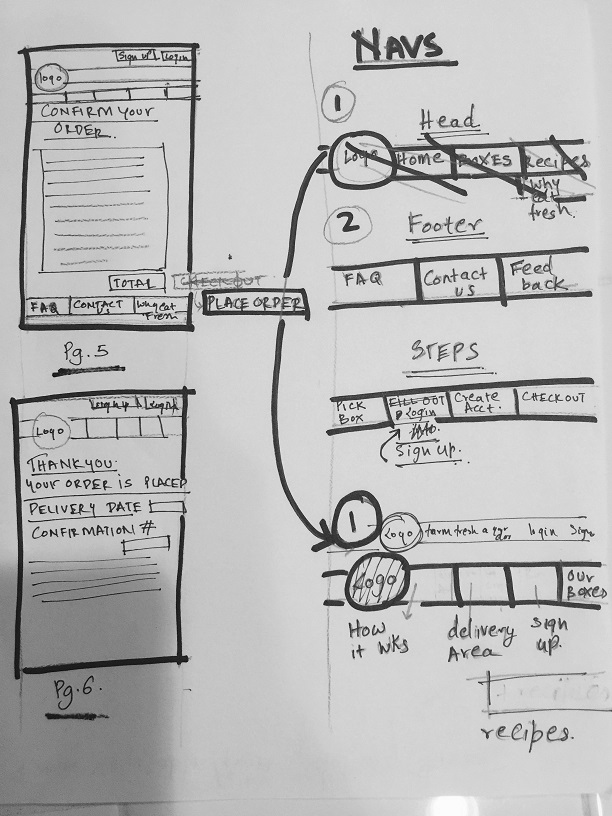 Sign up Login
Logo
CONFIRM YOUR
ORDER.
TOTAL
CHECK OUT
FAQ CONTACT US Why Eat Fresh
PLACE ORDER
Pg. 5
Logo
THANKYOU.
YOUR ORDER IS PLACED
DELIVERY DATE
CONFIRMATION #
Pg. 6.
NAVS
1
Head
Logo HOME BOXES RECIPES
Why
eat
fresh.
2
Footer
FAQ Contact us Feed back
STEPS
PICK BOX FILL OUT Login Create Acct. CHECKOUT
Sign up.
1
Logo farm fresh login Sign
Logo OUR BOXES
How it wks delivery Area sign up.
recipes.